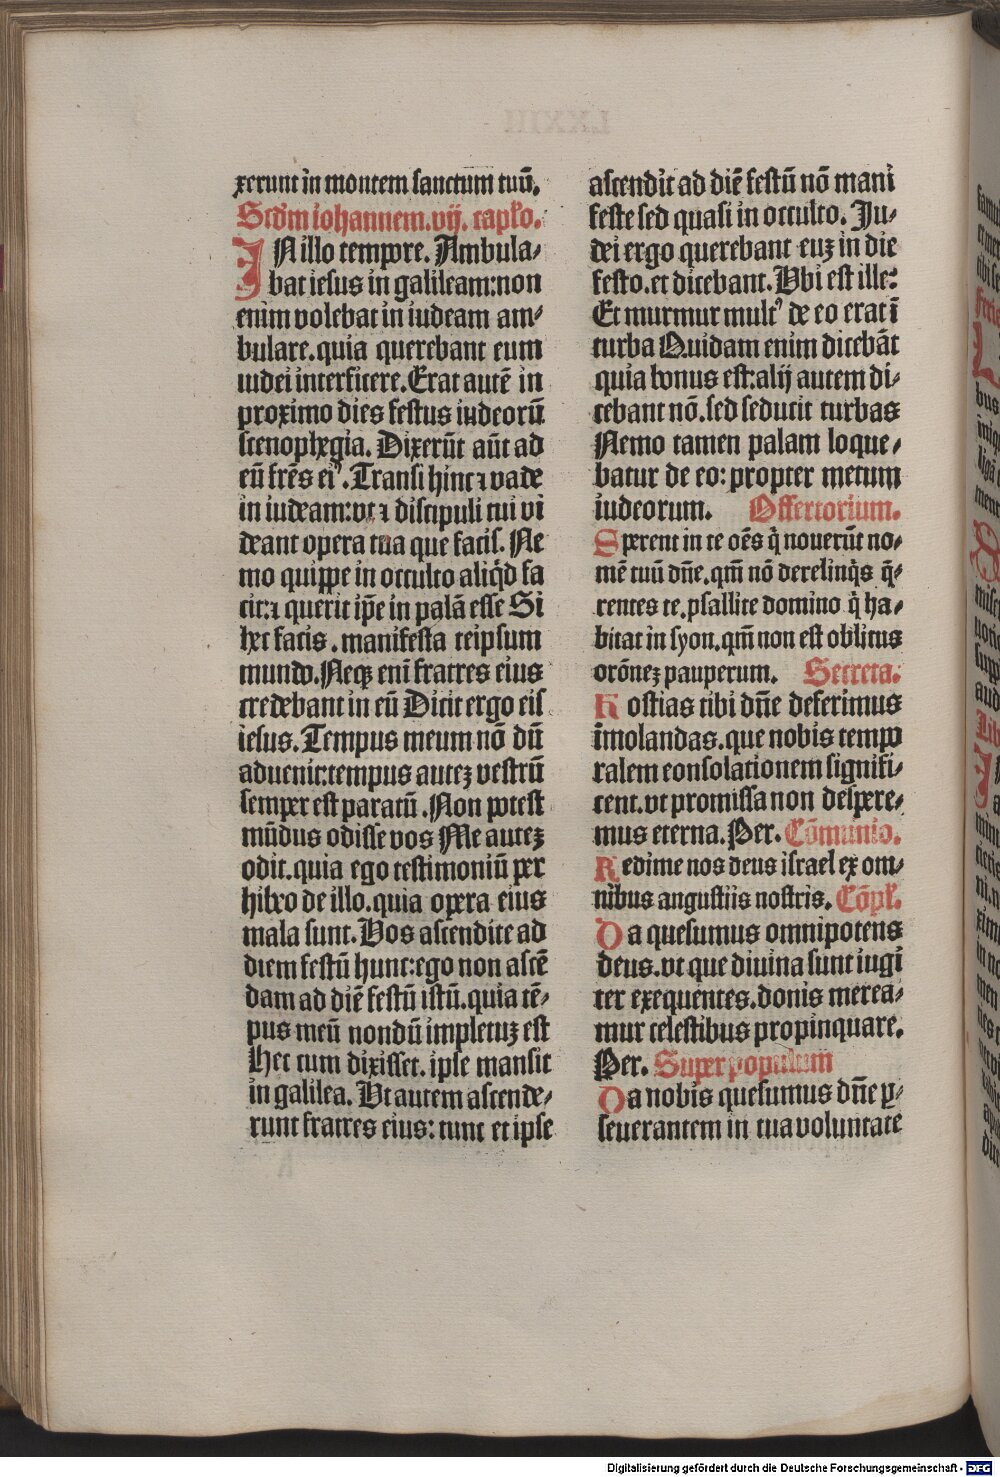 xerunt in montem sanctum tuū.
Scd̄m iohannem. vij. capl̓o.
IN illo tempore. Ambula⸗
bat iesus in galileam: non
enim volebat in iudeam am⸗
bulare. quia querebant eum
iudei interficere. Erat autē in
proximo dies festus iudeorū
scenophegia. Dixerūt aūt ad
eū frēs eiꝰ. Transi hinc ⁊ vade
in iudeam: vt ⁊ discipuli tui vi
deant opera tua que facis. Ne
mo quippe in occulto aliqd̄ fa
cit: ⁊ querit ip̄e in palā esse Si
hec facis. manifesta teipsum
mundo. Neqꝫ eni᷒ fratres eius
credebant in eū Dicit ergo eis
iesus. Tempus meum nō dū
aduenit: tempus auteꝫ vestrū
semper est paratū. Non potest
mūdus odisse vos Me auteꝫ
odit. quia ego testimoniū per
hibeo de illo. quia opera eius
mala sunt. Vos ascendite ad
diem festū hunc: ego non ascē
dam ad diē festū istū. quia tē⸗
pus meū nondū impletuꝫ est
Hec cum dixisset. ipse mansit
in galilea. Vt autem ascende⸗
runt fratres eius: tunc et ipse
ascendit ad diē festū nō mani
feste sed quasi in occulto. Ju⸗
dei ergo querebant euꝫ in die
festo. et dicebant. Vbi est ille:
Et murmur multꝰ de eo erat ī
turba Quidam enim dicebāt
quia bonus est: alij autem di⸗
cebant nō. sed seducit turbas
Nemo tamen palam loque⸗
batur de eo: propter metum
iudeorum. Offertorium.
Sperent in te oēs q̄ nouerūt no⸗
mē tuū dn̄e. qm̄ nō derelinq̄s q̄⸗
rentes te. psallite domino q̄ ha⸗
bitat in syon. qm̄ non est oblitus
orōneꝫ pauperum. Secreta.
Hostias tibi dn̄e deferimus
īmolandas. que nobis tempo
ralem consolationem signifi⸗
cent. vt promissa non despere⸗
mus eterna. Per. Cōmunio.
Redime nos deus israel ex om⸗
nibus angustiis nostris. Cōpl̓.
Da quesumus omnipotens
deus. vt que diuina sunt iugi
ter exequentes. donis merea⸗
mur celestibus propinquare.
Per. Super populum
Da nobis quesumus dn̄e ꝑ⸗
seuerantem in tua voluntate
Digitalisierung gefördert durch die Deutsche Forschungsgemeinschaft - DFG